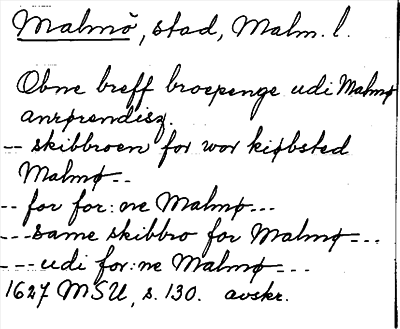 Malmö, stad, Malm. l.
Obne breff broepenge udi Malmø
anrørendisz.
-- skibbroen for wor kiøbsted
Malmø--
-- for for:ne Malmø---
---same skibbro for Malmø---
---udi for:ne Malmø---
1627 MSU, s. 130. avskr.